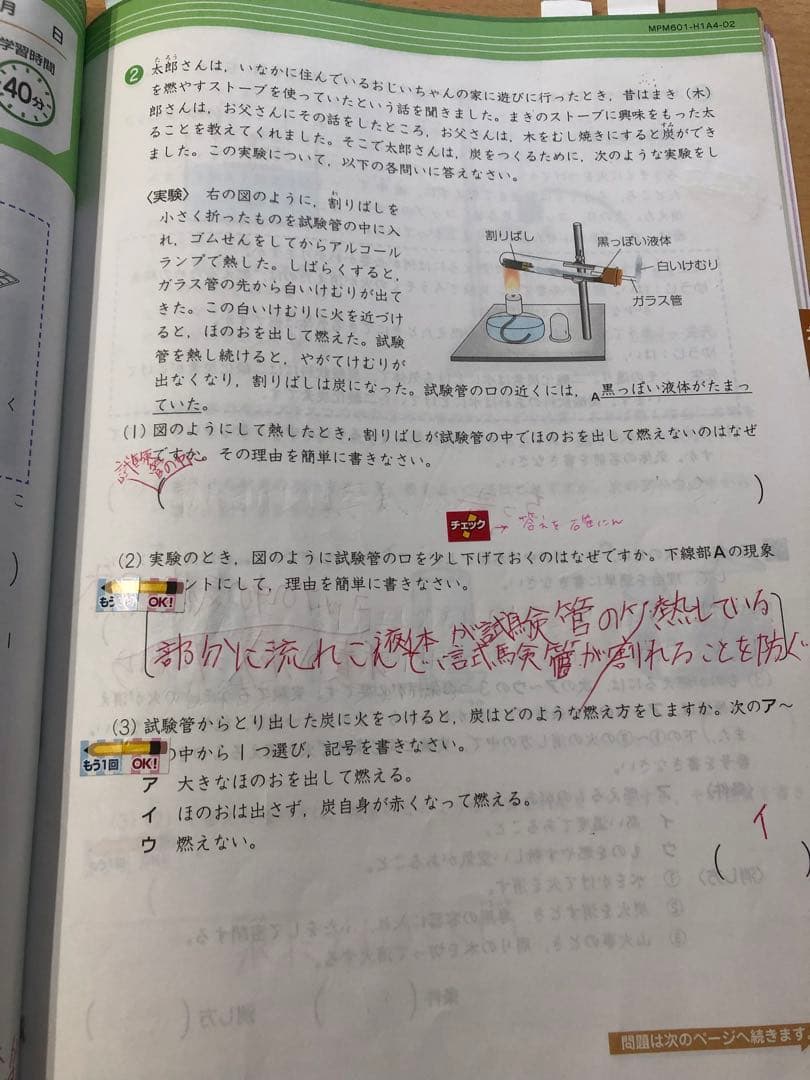 月 日
学習時間
40分
MPM601-H1A4-02
2 太郎さんは，いなかに住んでいるおじいちゃんの家に遊びに行ったとき，昔はまき（木）
たろう
を燃やすストーブを使っていたという話を聞きました。まきのストーブに興味をもった太
郎さんは，お父さんにその話をしたところ，お父さんは，木をむし焼きにすると炭ができ
すみ
ることを教えてくれました。そこで太郎さんは，炭をつくるために，次のような実験をし
ました。この実験について，以下の各問いに答えなさい。
〈実験〉 右の図のように，割りばしを
わ
小さく折ったものを試験管の中に入
れ，ゴムせんをしてからアルコール
ランプで熱した。しばらくすると，
ガラス管の先から白いけむりが出て
きた。この白いけむりに火を近づけ
ると，ほのおを出して燃えた。試験
管を熱し続けると，やがてけむりが
出なくなり，割りばしは炭になった。試験管の口の近くには，A黒っぽい液体がたまっ
ていた。
割りばし
黒っぽい液体
白いけむり
ガラス管
(1) 図のようにして熱したとき，割りばしが試験管の中でほのおを出して燃えないのはなぜ
ですか。その理由を簡単に書きなさい。
試験管の中
( )
チェック → 答えを確にん
(2) 実験のとき，図のように試験管の口を少し下げておくのはなぜですか。下線部Aの現象
ントにして，理由を簡単に書きなさい。
もう1回 OK!
液体が試験管の熱している
部分に流れこんで、試験管が割れることを防ぐ
(3) 試験管からとり出した炭に火をつけると，炭はどのような燃え方をしますか。次のア〜
の中から1つ選び，記号を書きなさい。
もう1回 OK!
ア 大きなほのおを出して燃える。
イ ほのおは出さず，炭自身が赤くなって燃える。
ウ 燃えない。
( イ )
問題は次のページへ続きます。